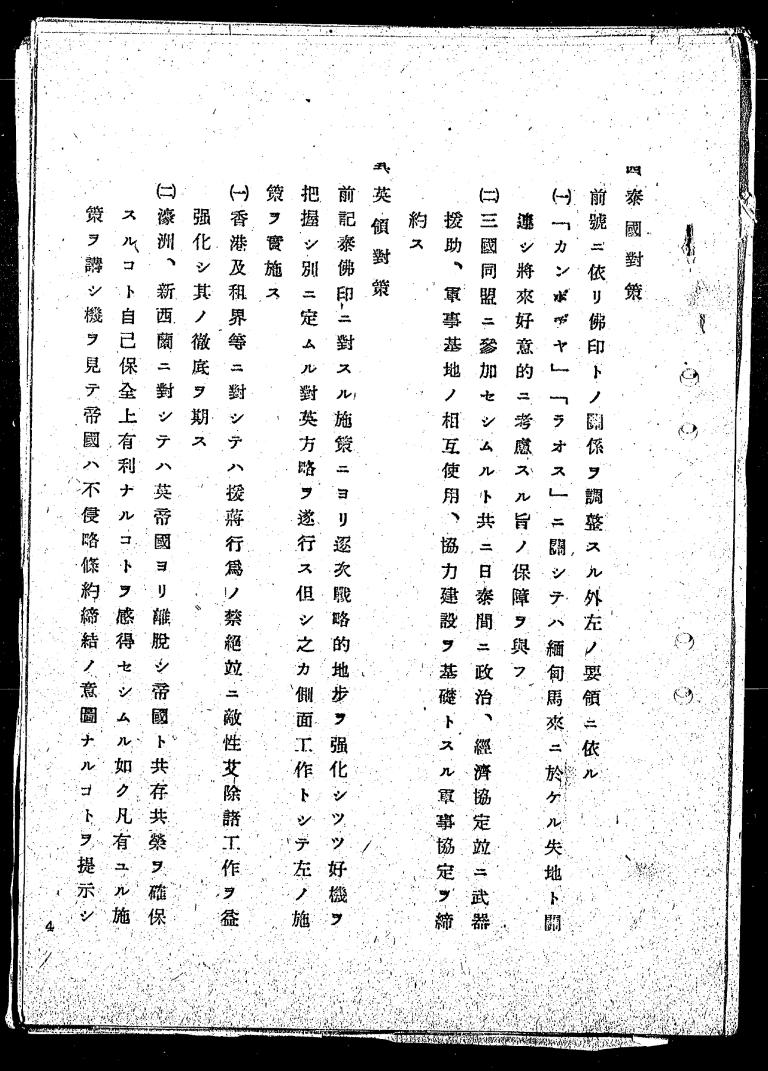 四 泰國對策
前號ニ依リ佛印トノ關係ヲ調整スル外左ノ要領ニ依ル
㈠「カンボヂヤ」「ラオス」ニ關シテハ緬甸馬來ニ於ケル失地ト關
連シ將來好意的ニ考慮スル旨ノ保障ヲ與フ
㈡三國同盟ニ參加セシムルト共ニ日泰間ニ政治、經濟協定竝ニ武器
援助、軍事基地ノ相互使用、協力建設ヲ基礎トスル軍事協定ヲ締
約ス
英領對策
前記泰佛印ニ對スル施策ニヨリ逐次戰略的地步ヲ强化シツツ好機ヲ
把握シ別ニ定ムル對英方略ヲ遂行ス但シ之カ側面工作トシテ左ノ施
策ヲ實施ス
㈠香港及租界等ニ對シテハ援蔣行爲ノ禁絕竝ニ敵性艾除諸工作ヲ益
强化シ其ノ徹底ヲ期ス
㈡濠洲、新西蘭ニ對シテハ英帝國ヨリ離脫シ帝國ト共存共榮ヲ確保
スルコト自己保全上有利ナルコトヲ感得セシムル如ク凡有ユル施
策ヲ講シ機ヲ見テ帝國ハ不侵略條約締結ノ意圖ナルコトヲ提示シ
4